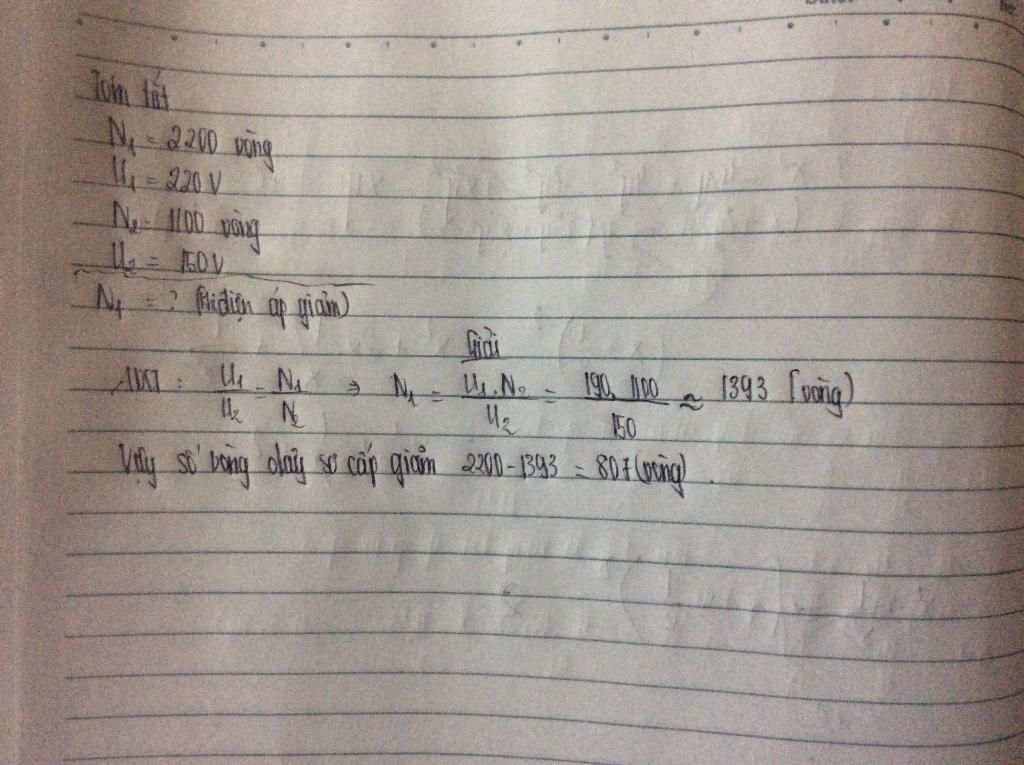 Tóm tắt
N₁ = 2200 vòng
U₁ = 220 V
N₂ = 1100 vòng
U₂ = 150 V
N₁ = ? (khi điện áp giảm)
Giải
ADCT : U₁/U₂ = N₁/N₂ ⇒ N₁ = U₁.N₂/U₂ = 190.1100/150 ≈ 1393 (vòng)
Vậy số vòng dây sơ cấp giảm 2200 - 1393 = 807 (vòng).